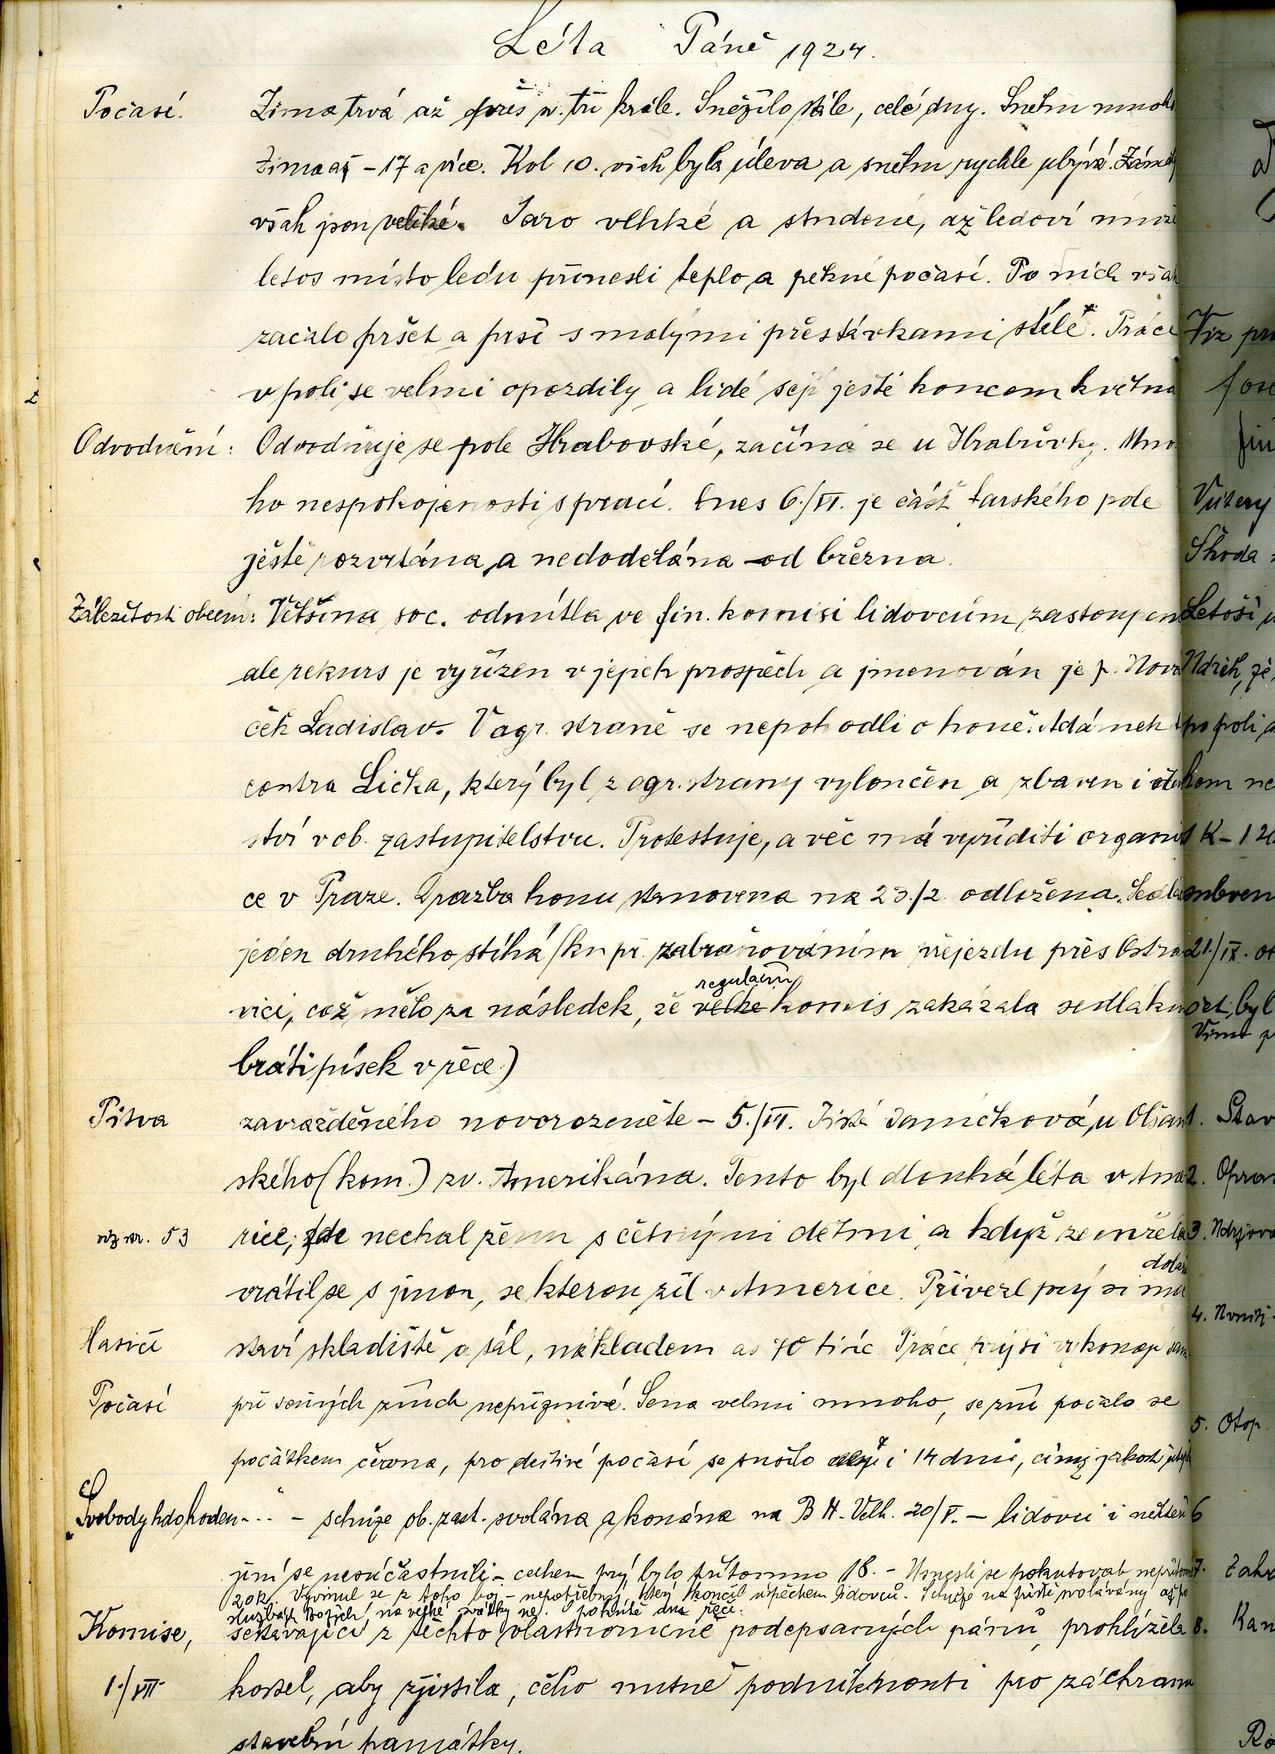 Léta Páně 1924.
Počasí. Zima trvá až přes sv. tři krále. Sněžilo stále, celé dny. Sněhu mnoho
zima až -17 a více. Kol 10. však byla úleva a sněhu rychle ubývá.
však jsou veliké. Jaro vlhké a studené, až ledoví muži
letos místo ledu přinesli teplo a pěkné počasí. Po nich však
začalo pršet a prší s malými přestávkami stále. Práce
v poli se velmi opozdily a lidé sejí ještě koncem května
Odvodnění: Odvodňuje se pole Hrabovské, začíná se u Hrabůvky. Mno
ho nespokojenosti s prací. Dnes 6./VI. je část farského pole
ještě rozvrtána a nedodělána od března.
Záležitosti obecní: Většina soc. odmítla ve fin. komisi lidovcům zastoupení
ale rekurs je vyřízen v jejich prospěch a jmenován je p. Nová
ček Ladislav. V agr. straně se nepohodli o honě: Adámek
contra Lička, který byl z agr. strany vyloučen a zbaven i
ství v ob. zastupitelstvu. Protestuje, a věc má vyříditi organisa
ce v Praze. Dražba honu stanovena na 23./2. odložena.
jeden druhého stíhá (ku př. zabraňováním vjezdu přes Ostra
regulační
vici, což mělo za následek, že velke komis zakázala sedlákům
bráti písek v řece.)
Pitva zavražděného novorozeněte - 5./VI. Jistá Janíčková, u Olšan
ského (kom.) zv. Amerikána. Tento byl dlouhá léta v Ame
viz str. 53 rice, zde nechal ženu s četnými dětmi a když zemřela
vrátil se s jinou, se kterou žil v Americe. Přivezl prý si
Hasiči staví skladiště a sál, nákladem as 70 tisíc. Práce prý si vykonají
Počasí při senných žních nepříznivé. Sena velmi mnoho, se žní počalo se
počátkem června, pro deštivé počasí se sušilo i 14 dnů, čímž
Svobody hdo hoden - - - schůze ob. zast. svolána a konána na B H. Velk. 20/V. - lidovci i
jiní se nesúčastnili - celkem prý bylo přítomno 18. - Usnesli se pokutovat
20 K. Vyvinul se z toho boj - nepotřebný, který skončil úspěchem lidovců. Schůze na příště svolávány až po
službách Božích, na velké svátky ne.
Komise, sestávající z těchto vlastnoručně podepsaných pánů, prohlížela
1./VII. kostel, aby zjistila, čeho nutně podniknouti pro záchranu
stavební památky.